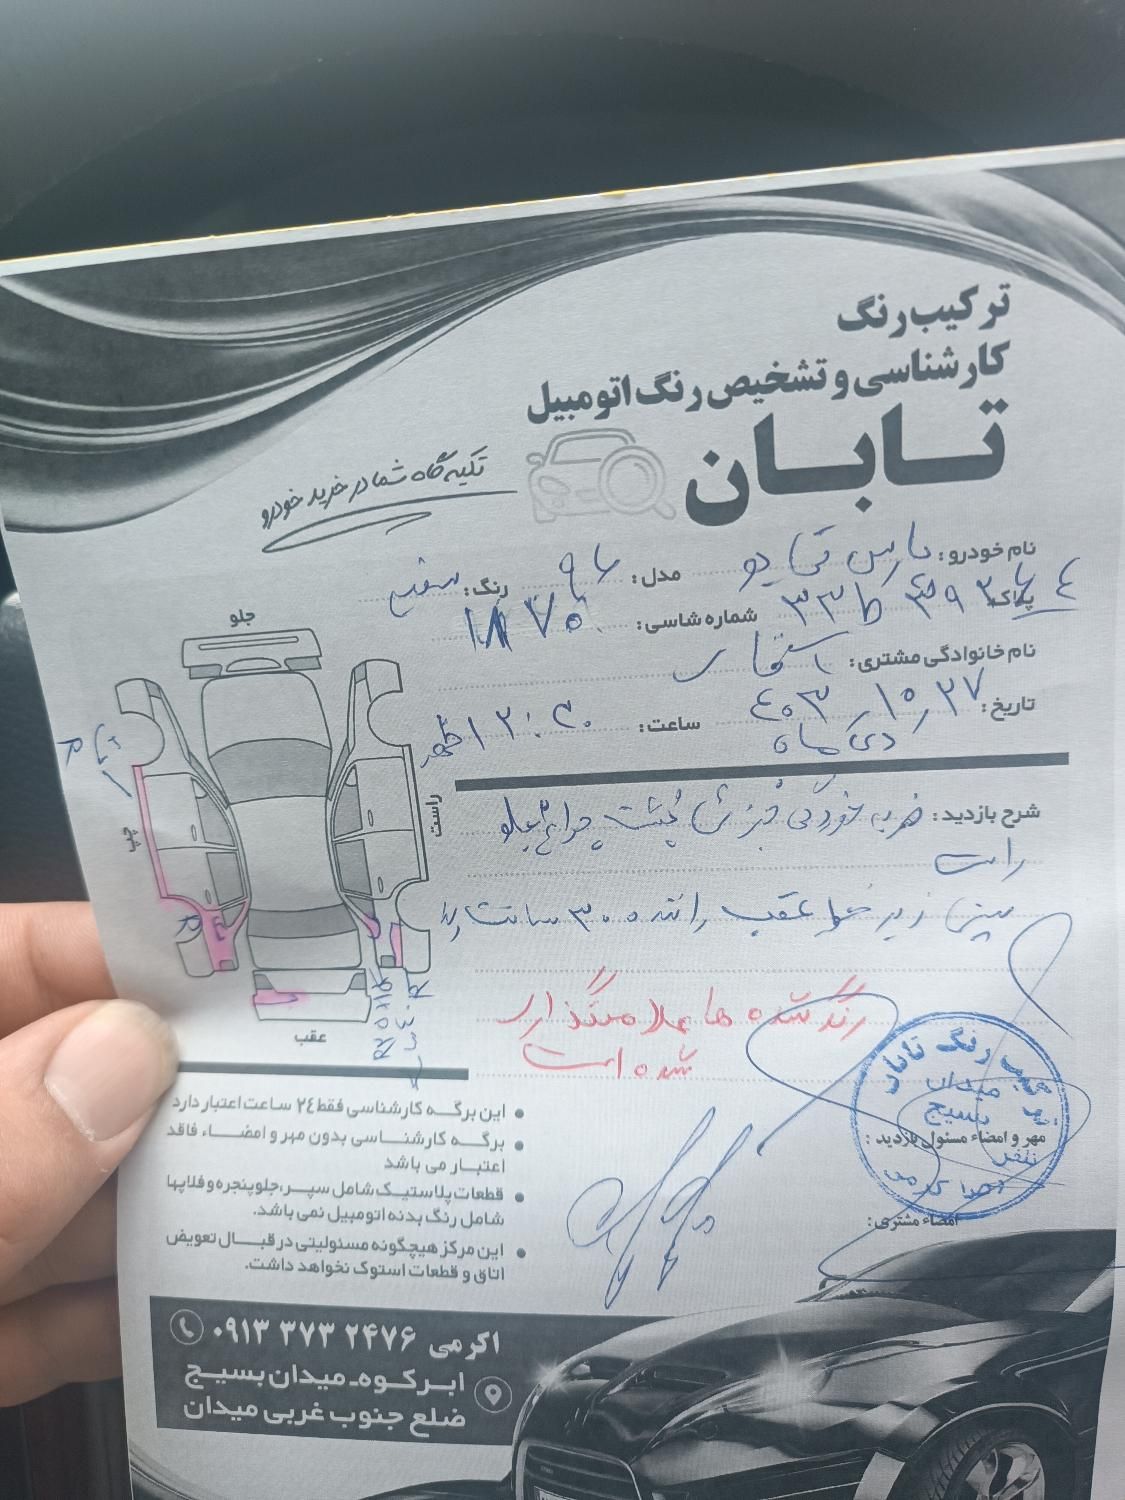 ترکیب رنگ
کارشناسی و تشخیص رنگ اتومبیل
تابان
تکیه گاه شما در خرید خودرو
نام خودرو: پارس تی یو
مدل: ۹۶
رنگ: سفید
پلاک:
شماره شاسی:
نام خانوادگی مشتری:
تاریخ: ۴۰۳/۱۰/۲۷
دی ماه
ساعت: ۱۲:۳۰ ظهر
جلو
چپ
راست
عقب
شرح بازدید: ضربه خوردگی پشت چراغ جلو
راست
زیر عقب راننده ۳۰ سانت رنگ
رنگ شده ها علامتگذاری
شده است
میدان
بسیج
مهر و امضاء مسئول بازدید:
امضاء مشتری:
این برگه کارشناسی فقط ۲٤ ساعت اعتبار دارد
برگه کارشناسی بدون مهر و امضاء فاقد
اعتبار می باشد
قطعات پلاستیک شامل سپر، جلو پنجره و فلاپها
شامل رنگ بدنه اتومبیل نمی باشد.
این مرکز هیچگونه مسئولیتی در قبال تعویض
اتاق و قطعات استوک نخواهد داشت.
اکرمی ۰۹۱۳ ۳۷۳ ۲۴۷۶
ابرکوه-میدان بسیج
ضلع جنوب غربی میدان